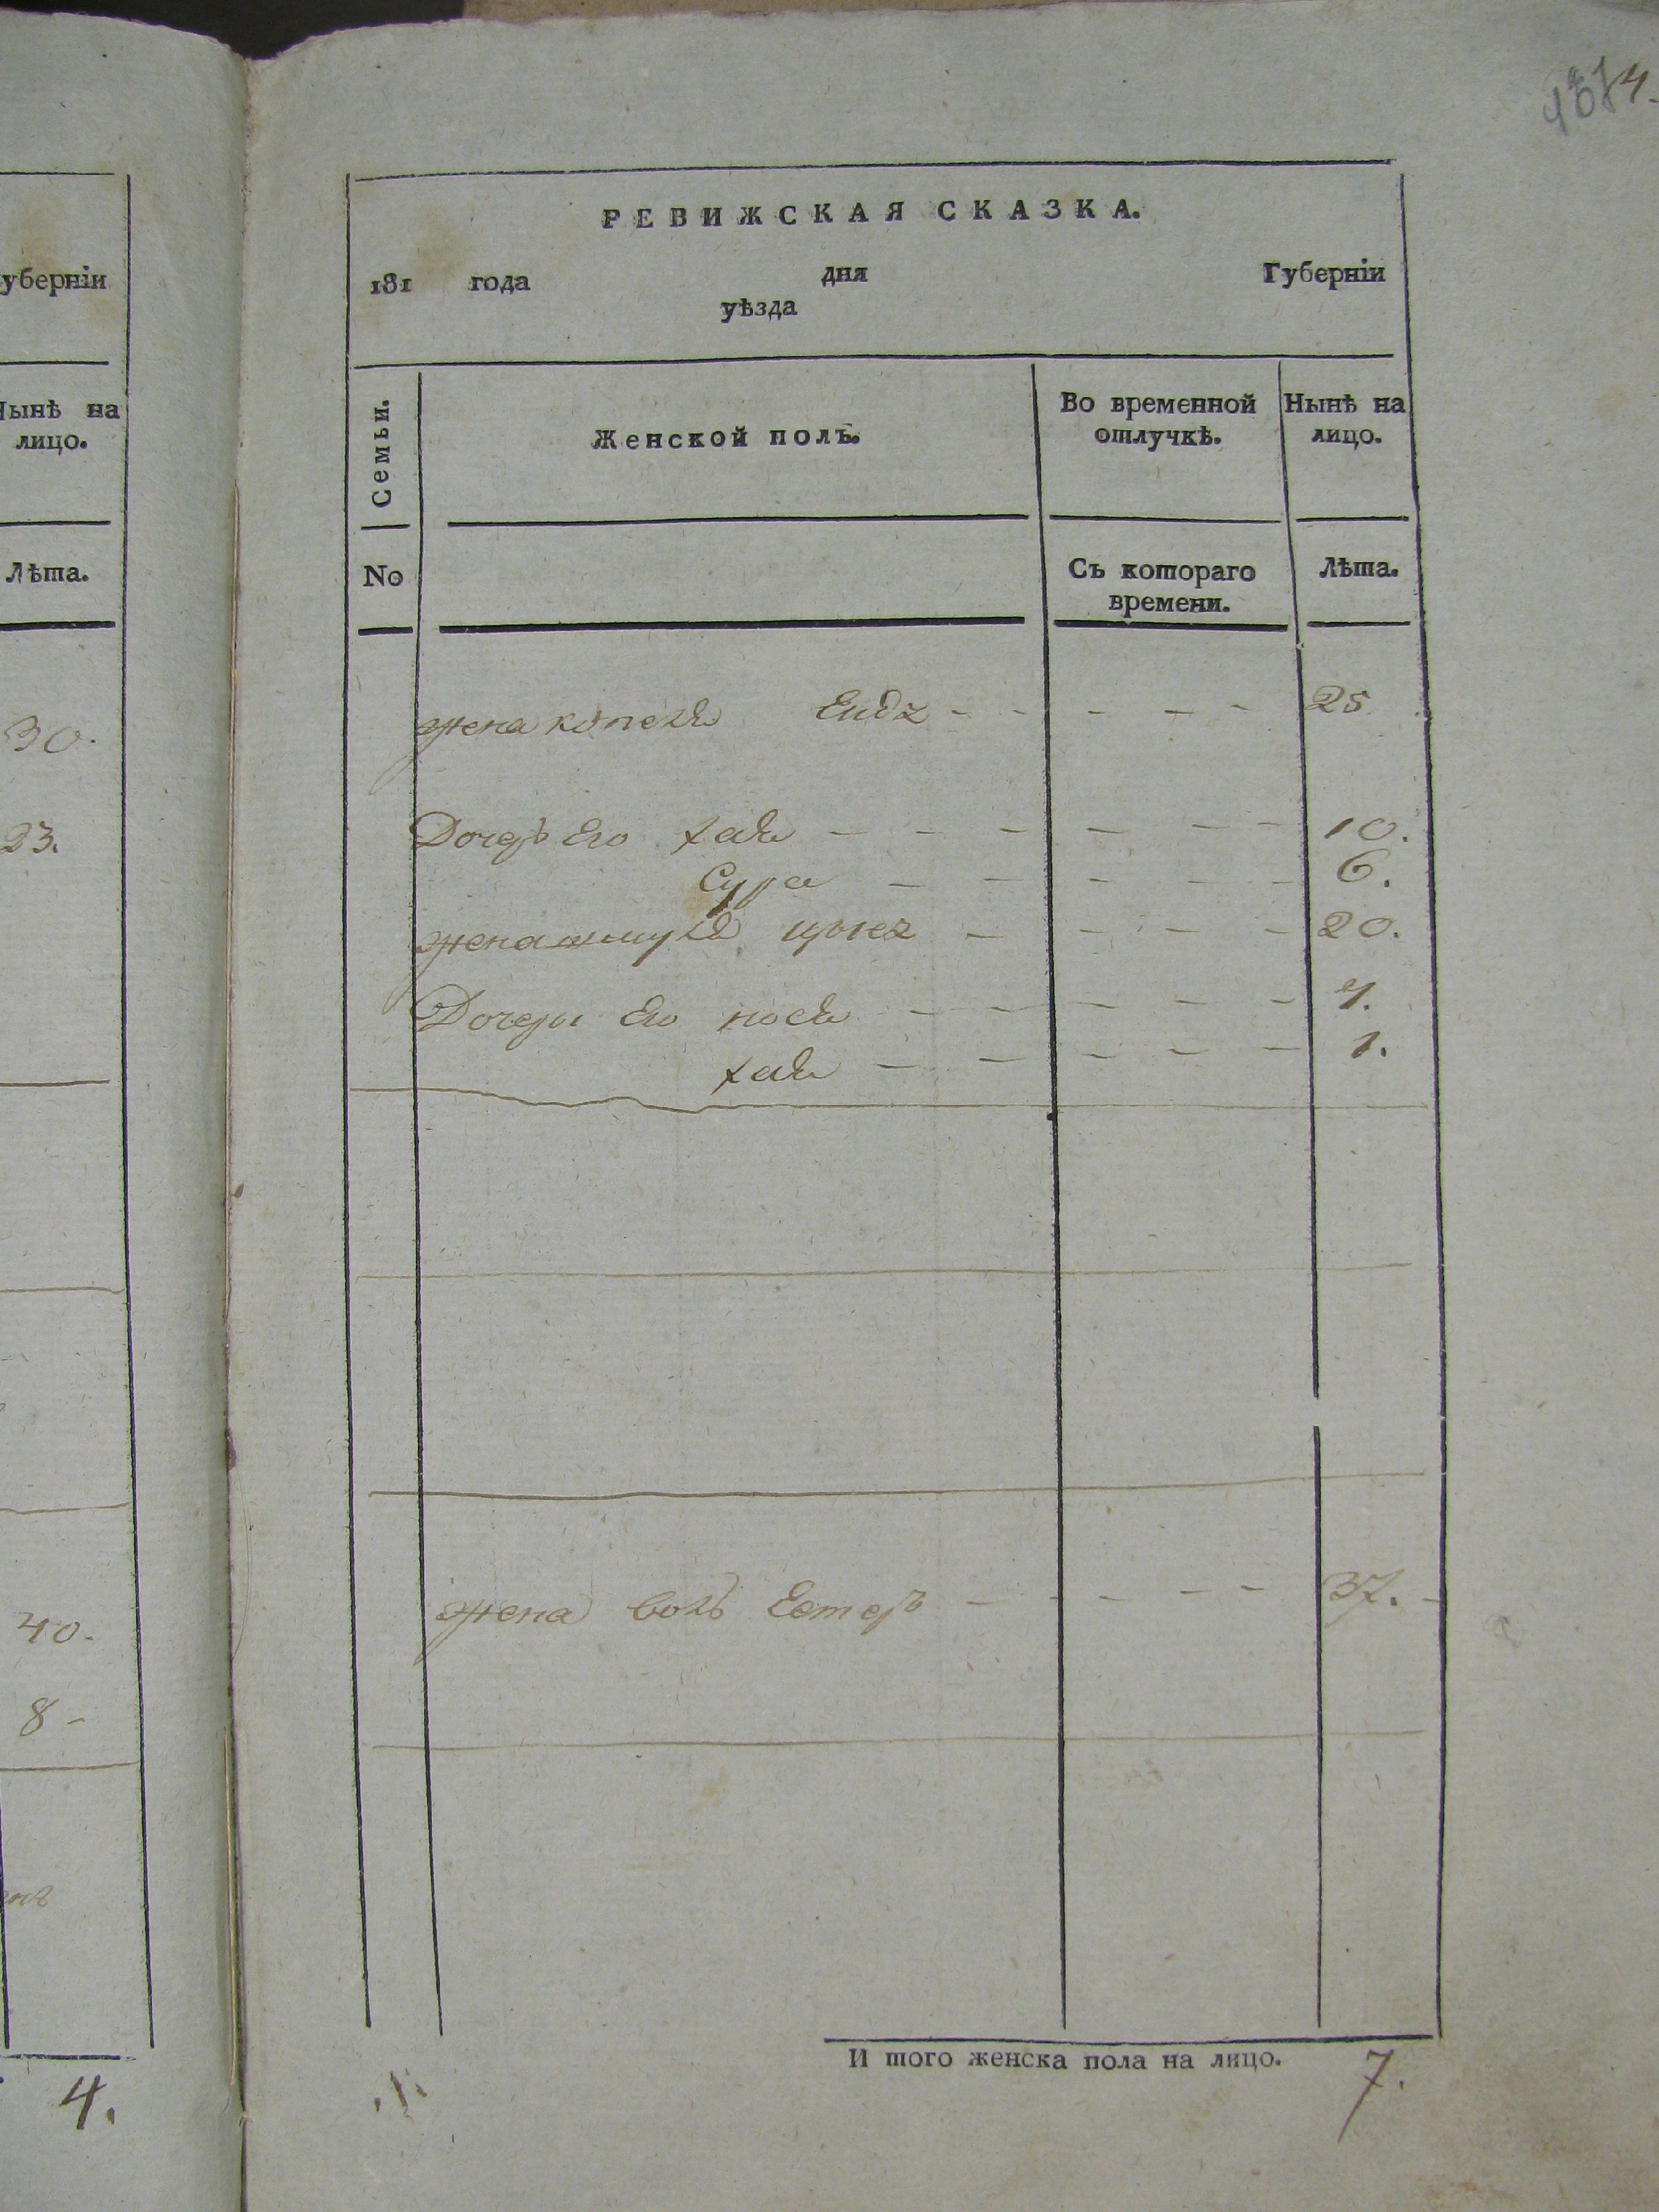 уберніи
Нынѣ на
лицо.
Лѣта.
30.
23.
40.
8 -
4.
4.
РЕВИЖСКАЯ СКАЗКА.
181 года дня Губерніи
уѣзда
Семьи.
Женской полъ.
Во временной
отлучкѣ.
Нынѣ на
лицо.
No
Съ котораго
времени.
Лѣта.
жена Ендя - - - - - 25
Дочерь Его хая - - - - - - 10.
Сура - - - - - - 6.
жена - - - - - 20.
Дочери Его - - - - - - 4.
хая - - - - - - 1.
жена Естерь - - - - 37.
И того женска пола на лицо. 7.